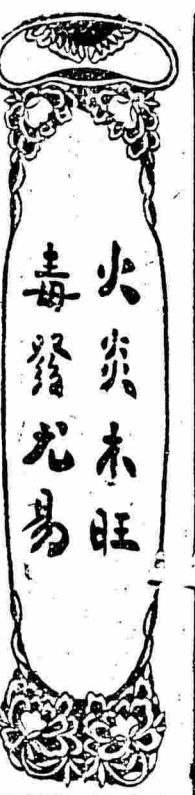 火炎木旺
毒發尤易